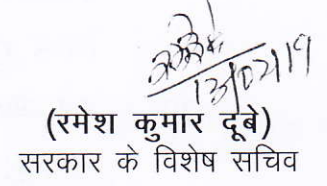 13/02/19
(रमेश कुमार दूबे)
सरकार के विशेष सचिव